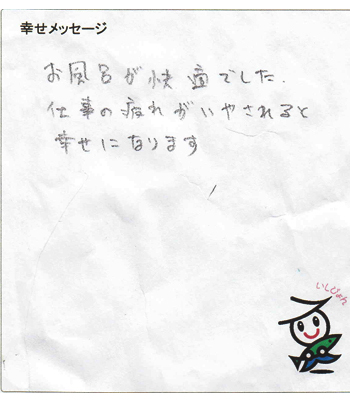 幸せメッセージ
お風呂が快適でした.
仕事の疲れがいやされると
幸せになります
いしぴょん